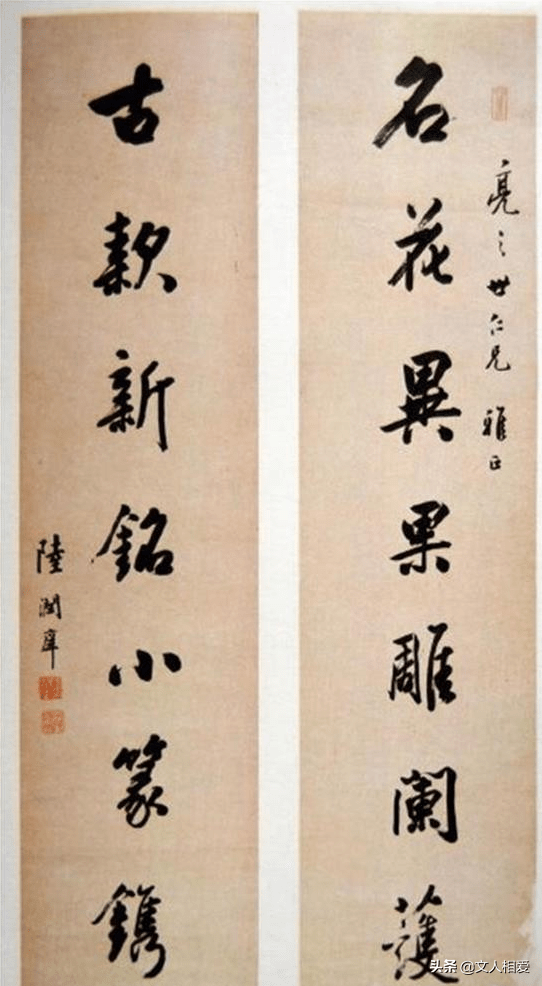 亮之世仁兄 雅正
名花異果雕闌護
古款新銘小篆鐫
陸潤庠
头条 @文人相爱